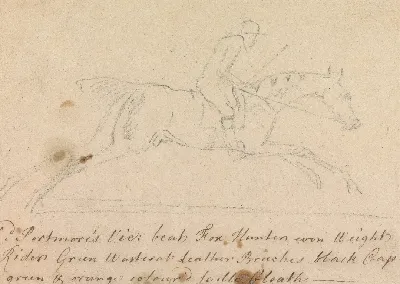 Ld. Portmore's Vic: beats Fox Hunter, even Weights
Riders Green Wastcoat Leather Breeches black Cap
green & orange colour'd saddle Cloaths —